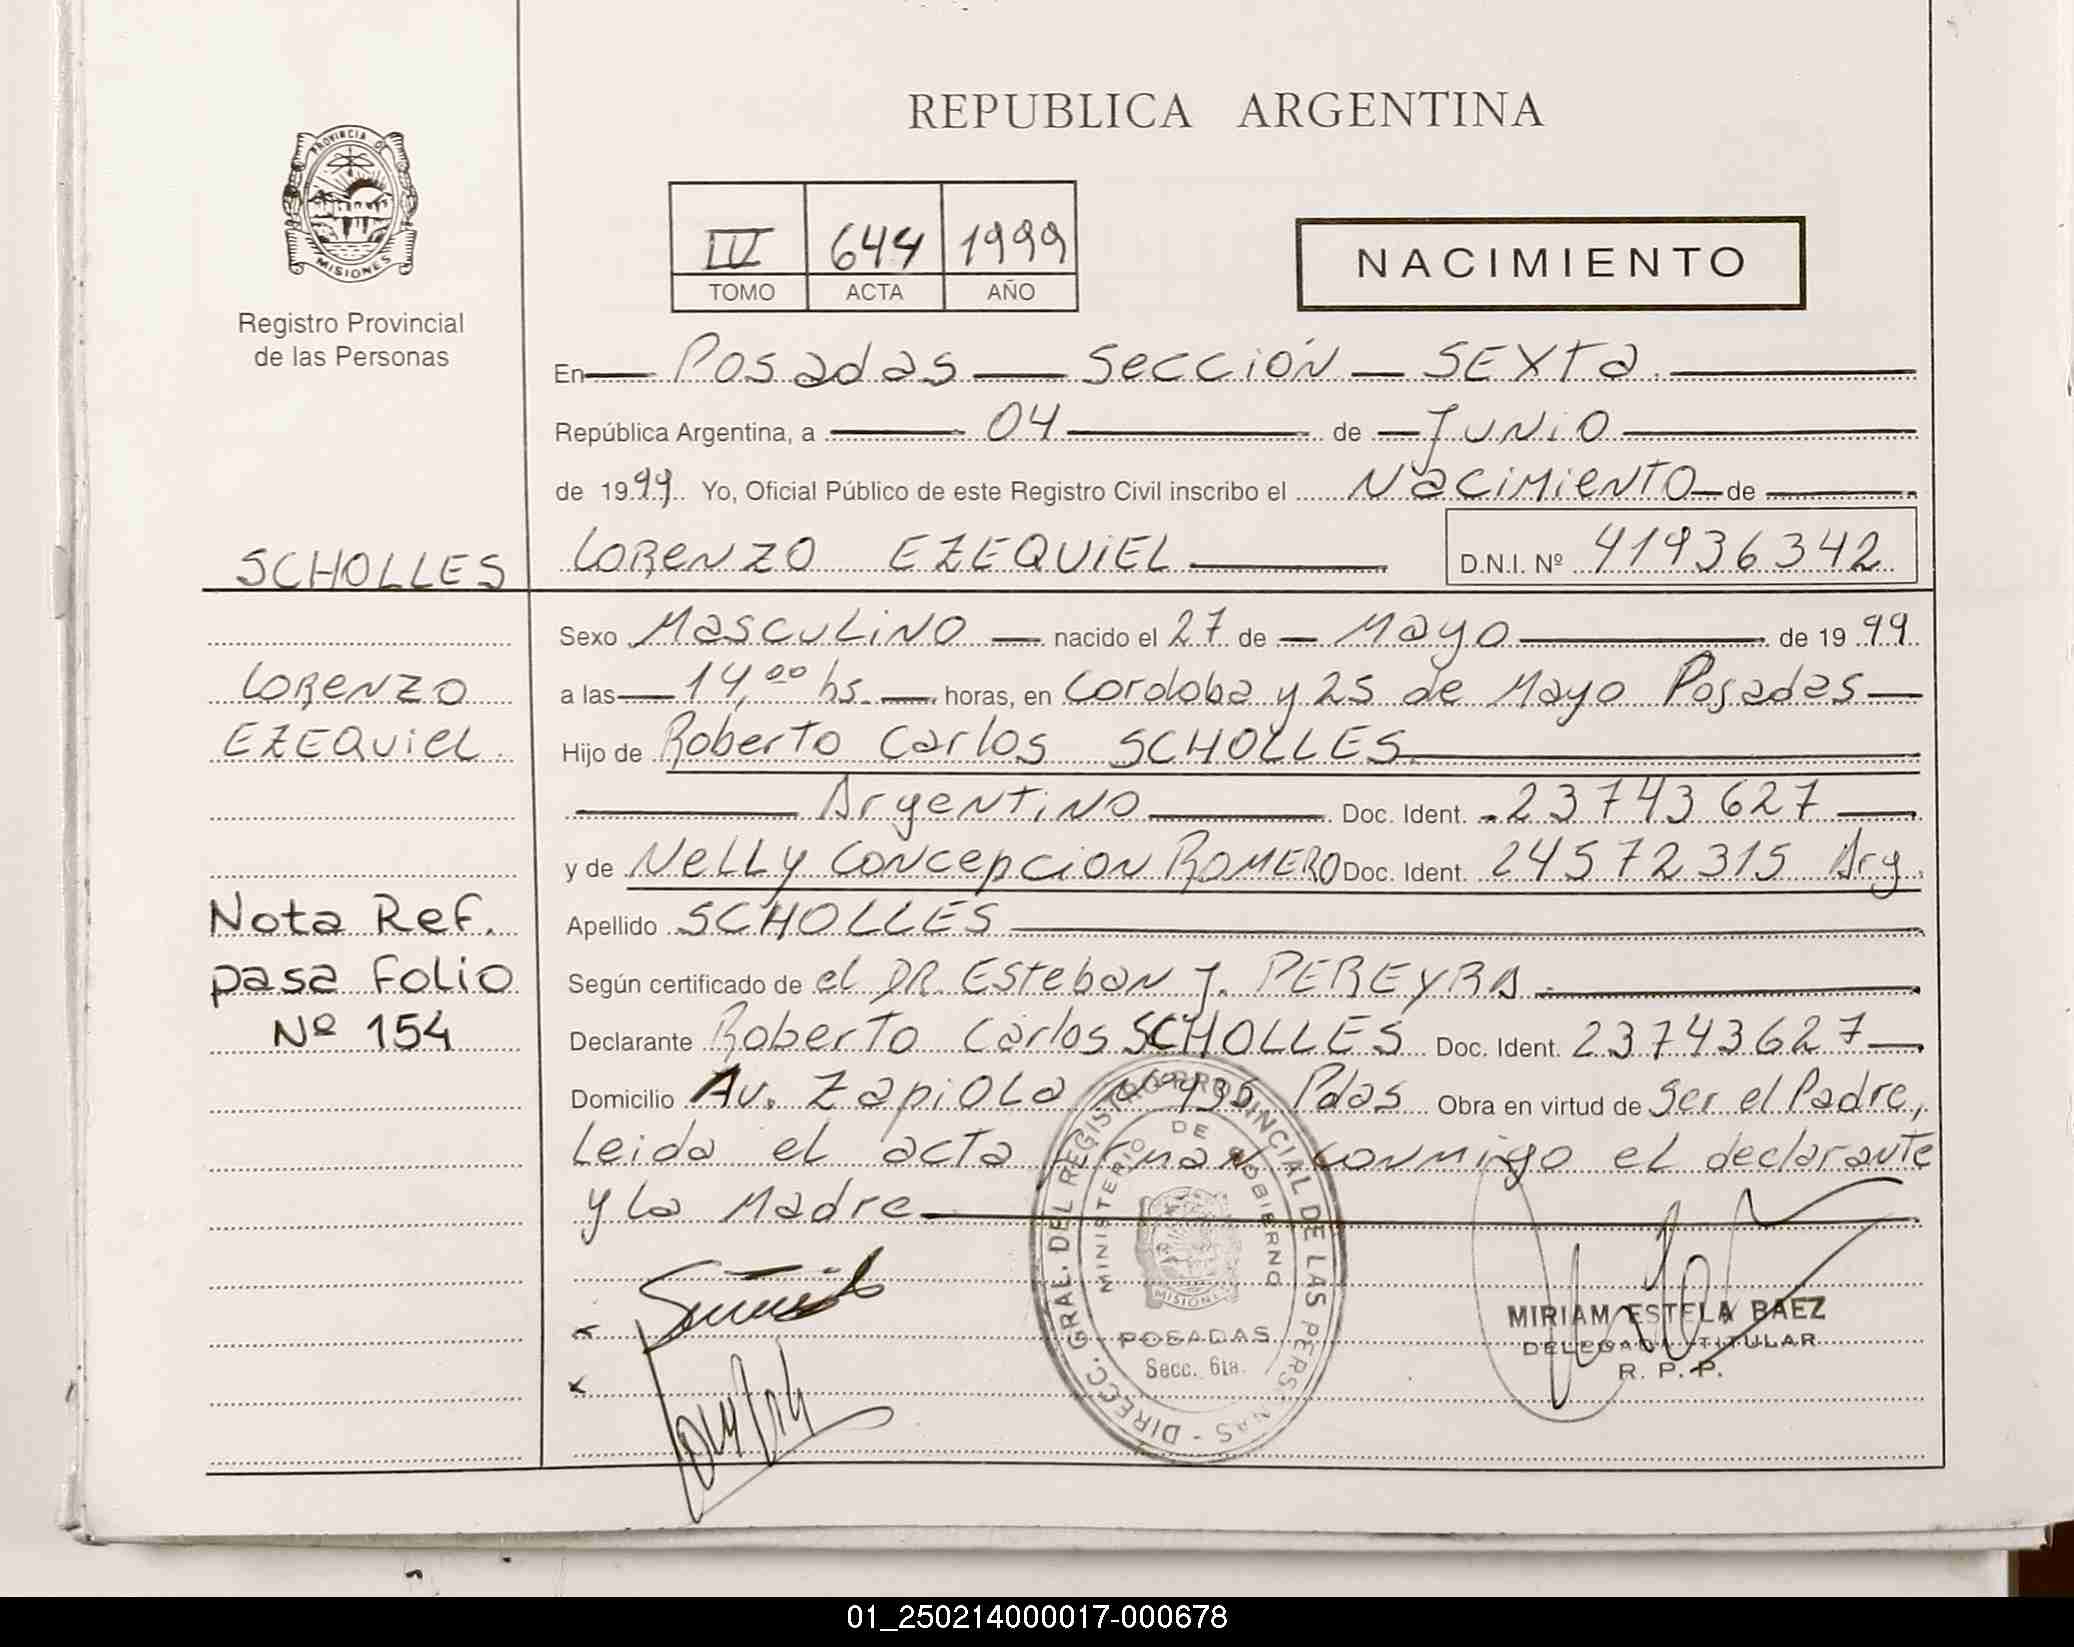 REPUBLICA ARGENTINA
PROVINCIA DE
MISIONES
Registro Provincial
de las Personas
644 1999
TOMO ACTA AÑO
NACIMIENTO
En Posadas Sección SEXTa.
República Argentina, a 04 de Junio
de 1999 Yo, Oficial Público de este Registro Civil inscribo el Nacimiento de
SCHOLLES
Lorenzo EZEQUIEL D.N.I. Nº 41936342
Sexo Masculino nacido el 27 de Mayo de 1999
Lorenzo
EZEQUIEL.
a las 14,00 hs. horas, en Cordoba y 25 de Mayo Posadas
Hijo de Roberto Carlos SCHOLLES
Argentino Doc. Ident. 23743627
y de Nelly Concepcion ROMERO Doc. Ident. 24572315 Arg.
Nota Ref.
pasa Folio
Nº 154
Apellido SCHOLLES
Según certificado de el DR. Esteban J. PEREYRA
Declarante Roberto Carlos SCHOLLES Doc. Ident. 23743627
Domicilio Av. Zapiola Nº Pdas Obra en virtud de Ser el Padre,
Leida el acta firman conmigo el declarante
y la Madre
DIRECC. GRAL. DEL REGISTRO PROVINCIAL DE LAS PERSONAS
MINISTERIO DE GOBIERNO
MISIONES
POSADAS
Secc. 6ta.
MIRIAM ESTELA BAEZ
DELEGADA TITULAR
R. P. P.
01_250214000017-000678